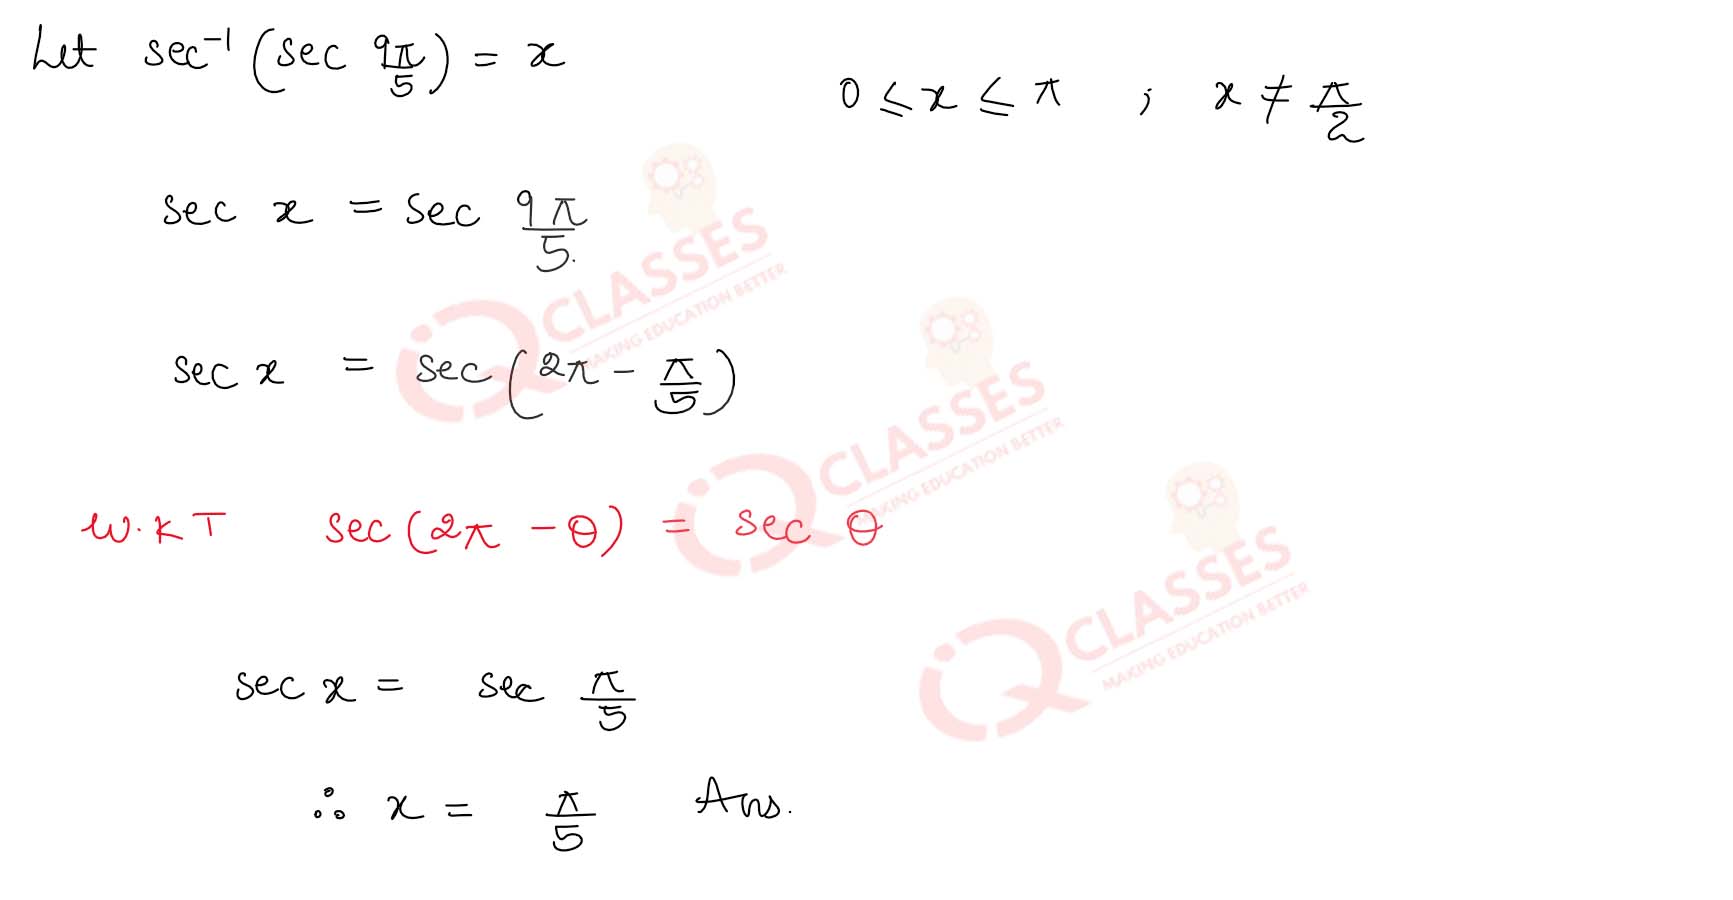 Let sec⁻¹(sec 9π/5) = x
0 ≤ x ≤ π ; x ≠ π/2
sec x = sec 9π/5
sec x = sec(2π - π/5)
W.K.T sec(2π - θ) = sec θ
sec x = sec π/5
∴ x = π/5 Ans.
iQ CLASSES
MAKING EDUCATION BETTER
iQ CLASSES
MAKING EDUCATION BETTER
iQ CLASSES
MAKING EDUCATION BETTER